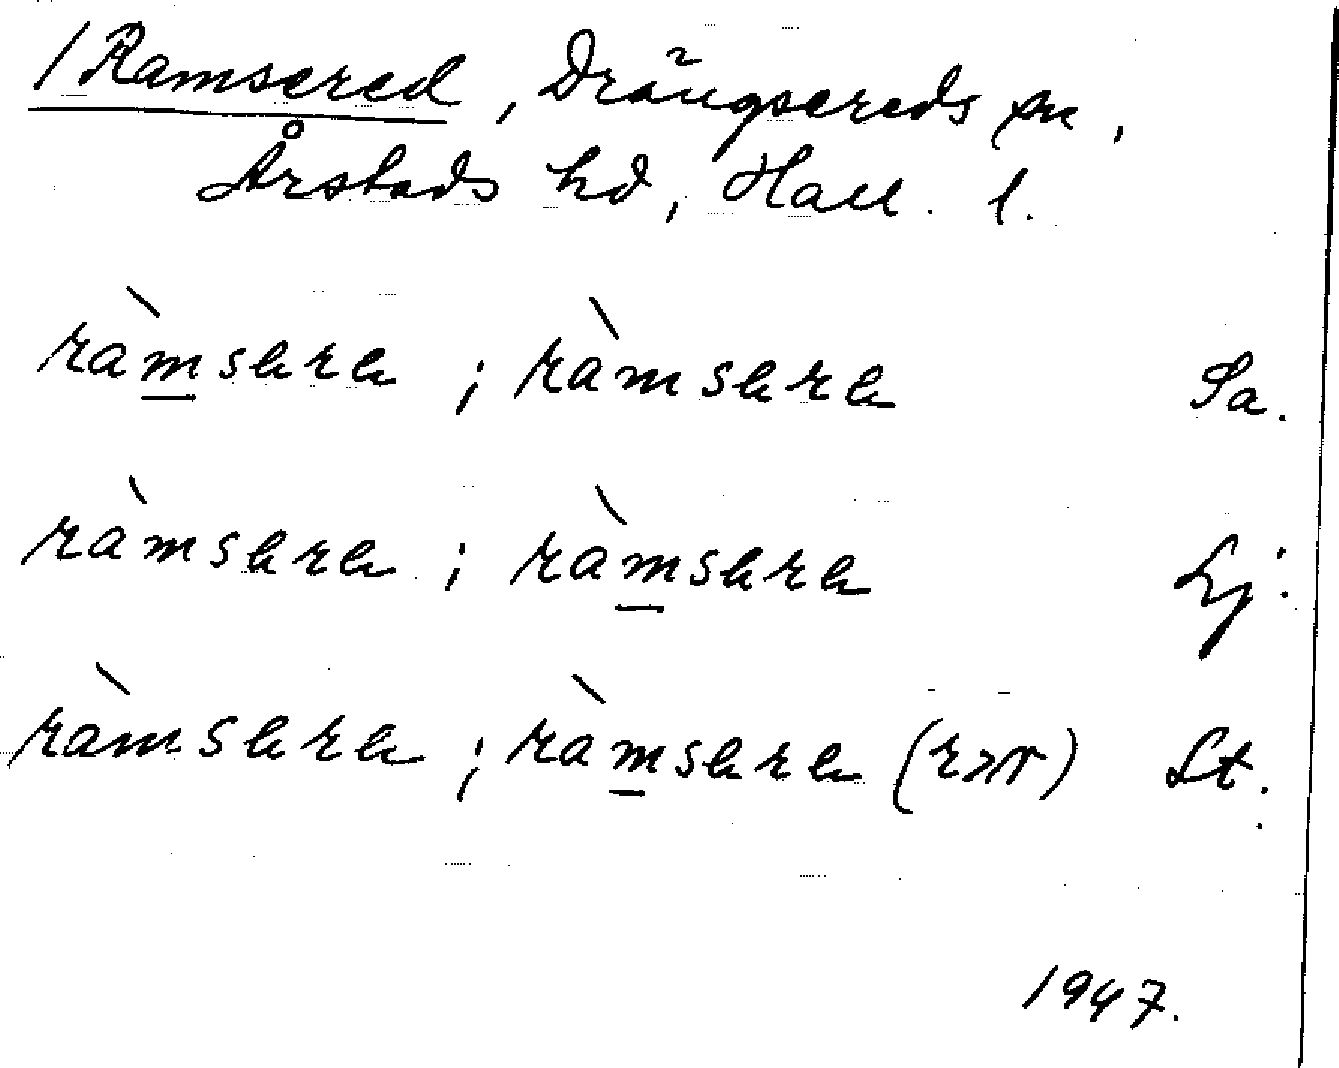 /Ramsered, Drängsereds sn,
Årstads hd, Hall. l.
ràmsere ; ràmsere Sa.
ràmsere ; ràmsere Lj.
ràmsere ; ràmsere (r>r) St.
1947.